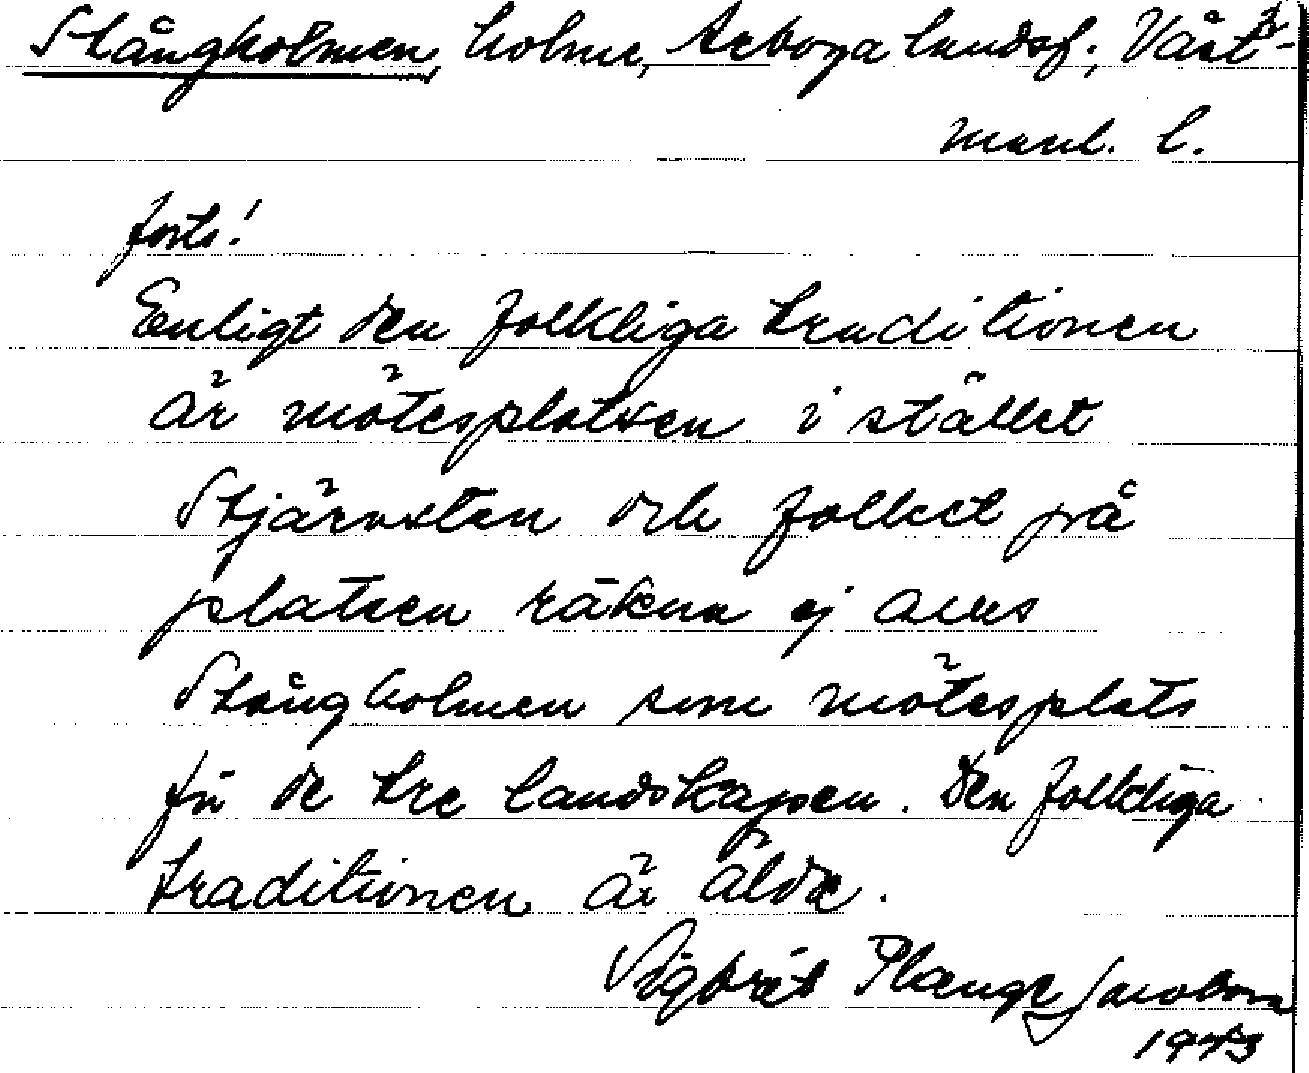 Stångholmen, holme, Arboga landsf., Väst-
manl. l.
forts!
Enligt den folkliga traditionen
är mötesplatsen i stället
Stjärnsten och folket på
platsen räkna ej alls
Stångholmen som mötesplats
för de tre landskapen. Den folkliga
traditionen är äldre.
Sigbrit Plænge Jacobson
1973